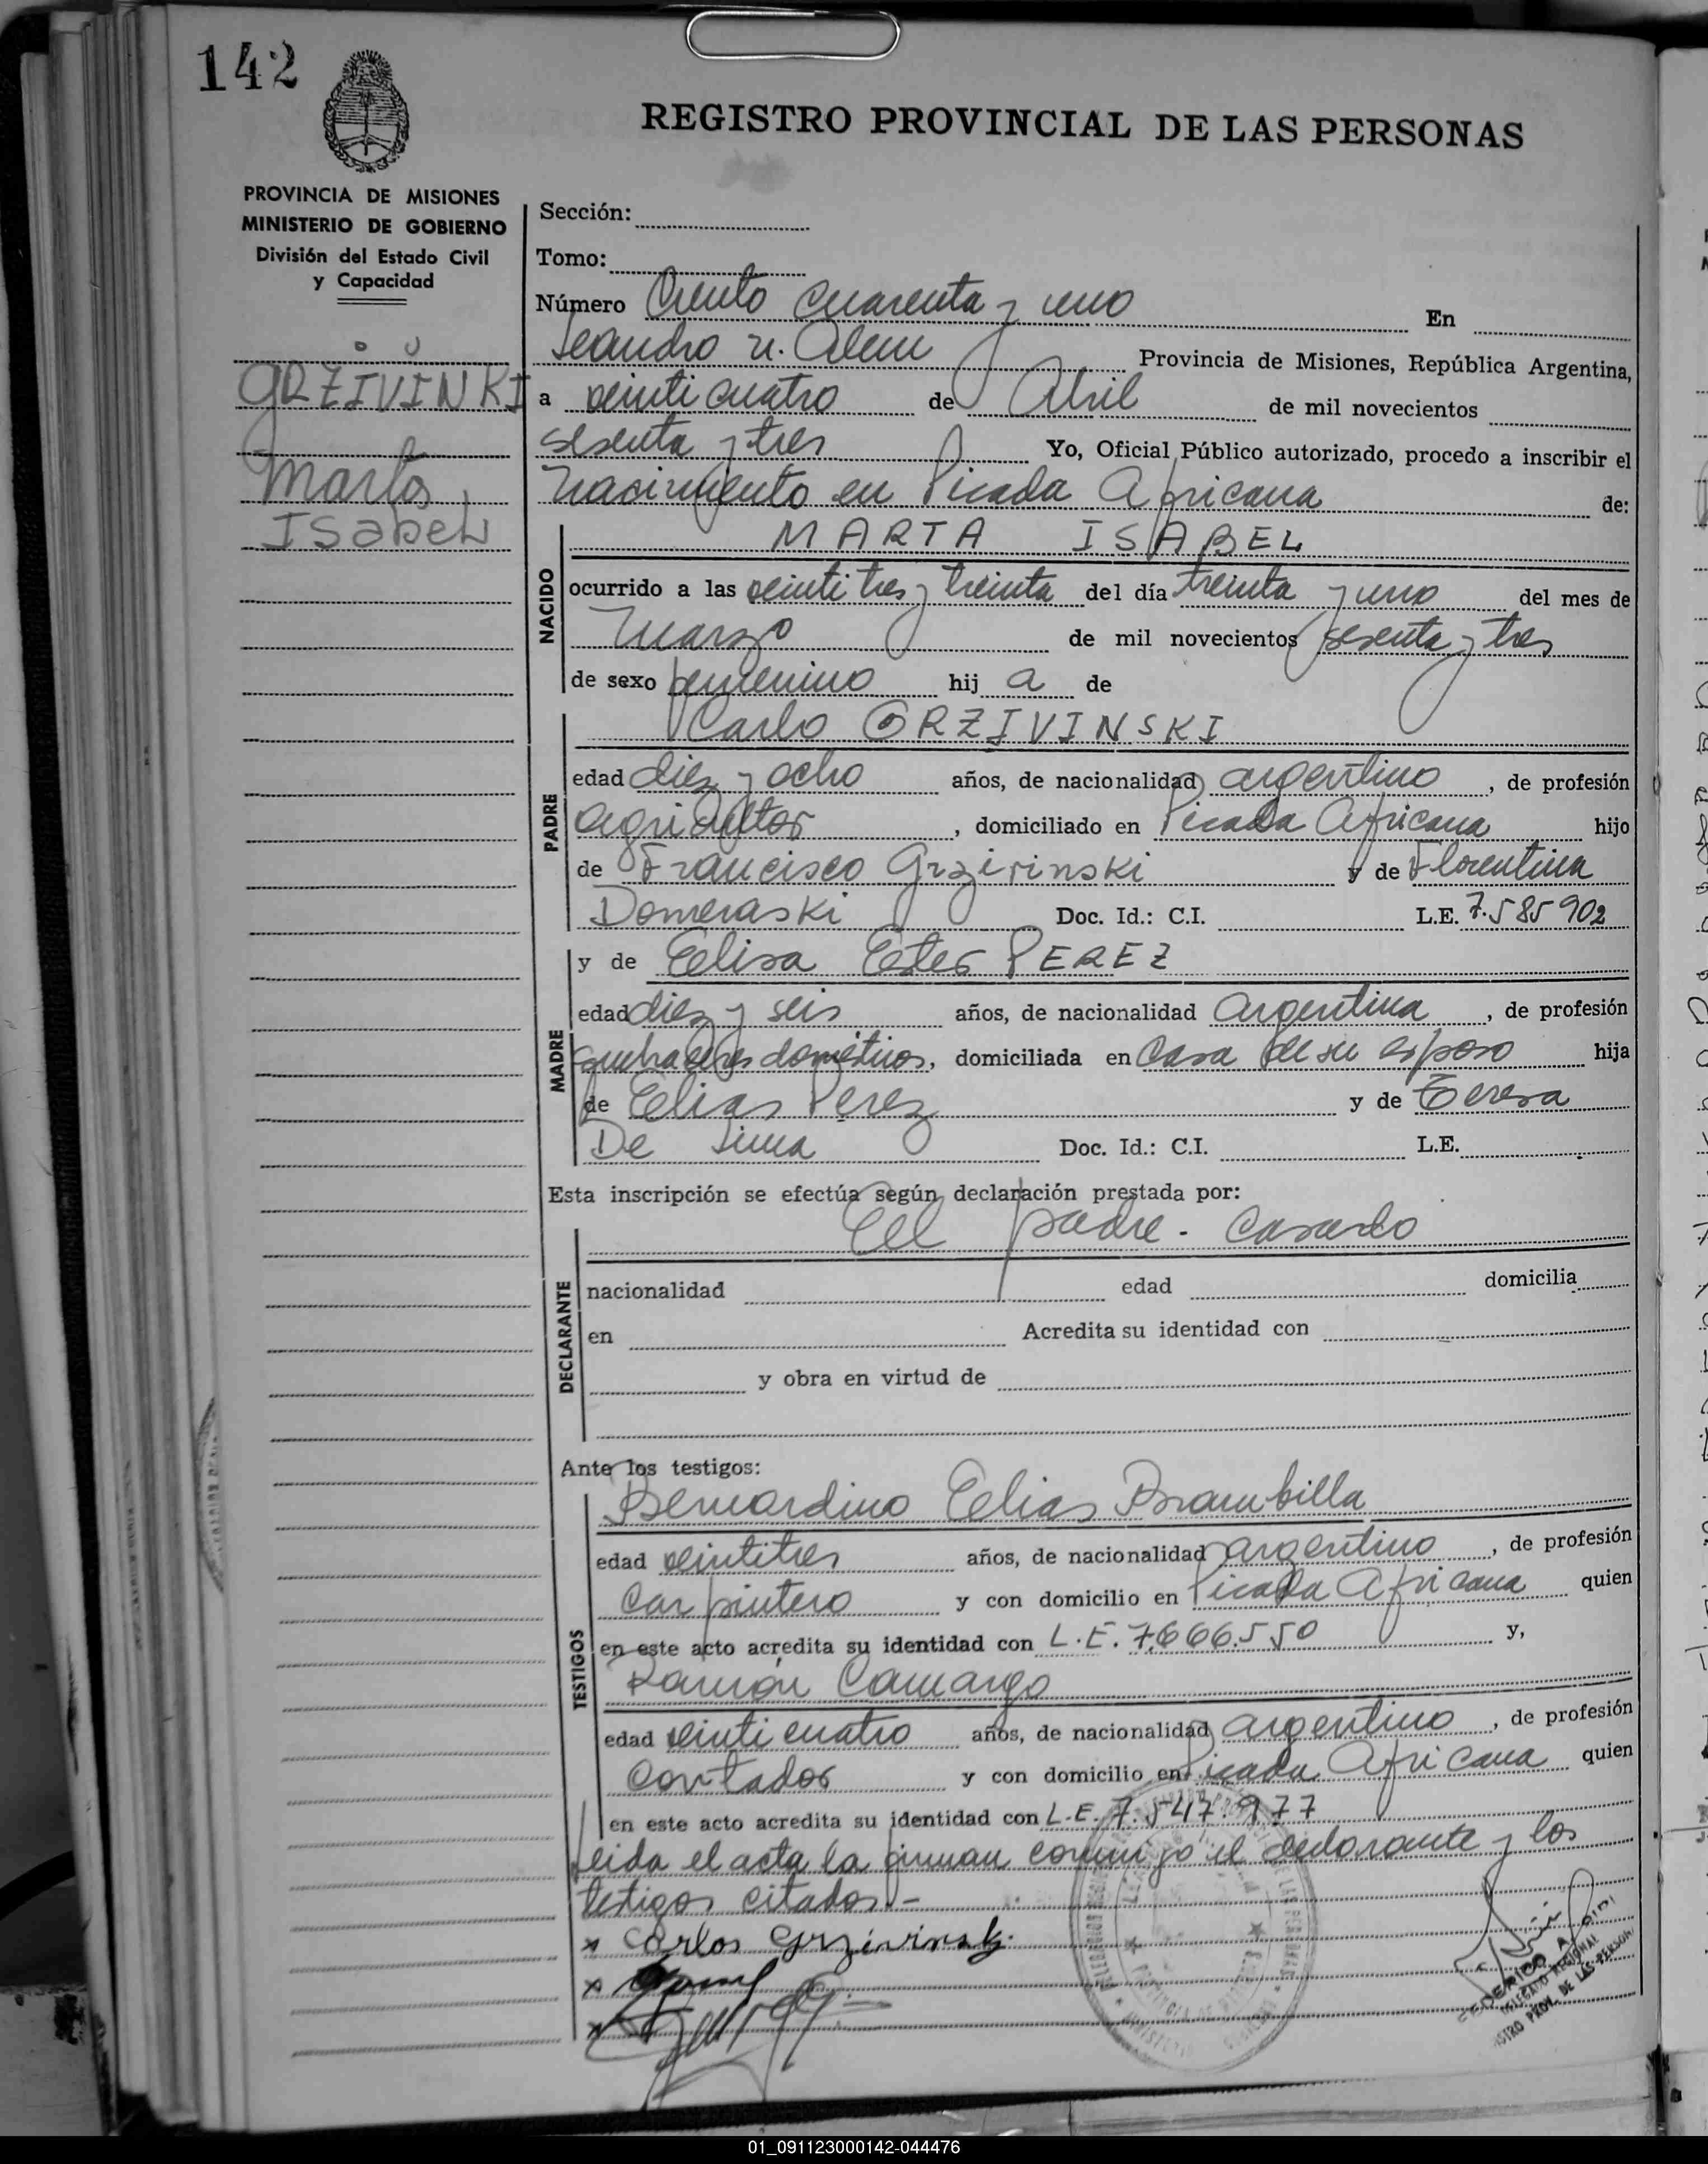 142
REGISTRO PROVINCIAL DE LAS PERSONAS
PROVINCIA DE MISIONES
MINISTERIO DE GOBIERNO
División del Estado Civil
y Capacidad
GRZIVINKI
Marta
Isabel
Sección:
Tomo:
Número Ciento cuarenta y uno En
Leandro N. Alem Provincia de Misiones, República Argentina,
a veinticuatro de Abril de mil novecientos
sesenta y tres Yo, Oficial Público autorizado, procedo a inscribir el
Nacimiento en Picada Africana de:
NACIDO
MARTA ISABEL
ocurrido a las veintitres y treinta del día treinta y uno del mes de
Marzo de mil novecientos sesenta y tres
de sexo femenino hij a de
PADRE
Carlo GRZIVINSKI
edad diez y ocho años, de nacionalidad argentino, de profesión
agricultor, domiciliado en Picada Africana hijo
de Francisco Grzivinski y de Florentina
Domeraski Doc. Id.: C.I. L.E. 7.585902
MADRE
y de Elisa Ester PEREZ
edad diez y seis años, de nacionalidad argentina, de profesión
quehaceres domésticos, domiciliada en casa de su esposo hija
de Elias Perez y de Teresa
De Lima Doc. Id.: C.I. L.E.
Esta inscripción se efectúa según declaración prestada por:
DECLARANTE
El padre - casado
nacionalidad edad domicilia
en Acredita su identidad con
y obra en virtud de
Ante los testigos:
TESTIGOS
Bernardino Elias Brambilla
edad veintitres años, de nacionalidad argentino, de profesión
carpintero y con domicilio en Picada Africana quien
en este acto acredita su identidad con L.E. 7.666.550 y,
Ramón Camargo
edad veinticuatro años, de nacionalidad argentino, de profesión
contador y con domicilio en Picada Africana quien
en este acto acredita su identidad con L.E. 7.547.977
Leida el acta la firman conmigo el declarante y los
testigos citados.-
x Carlos Grzivinski
x
x
DELEGADO REGIONAL
PROV. DE LAS PERSON
01_091123000142-044476